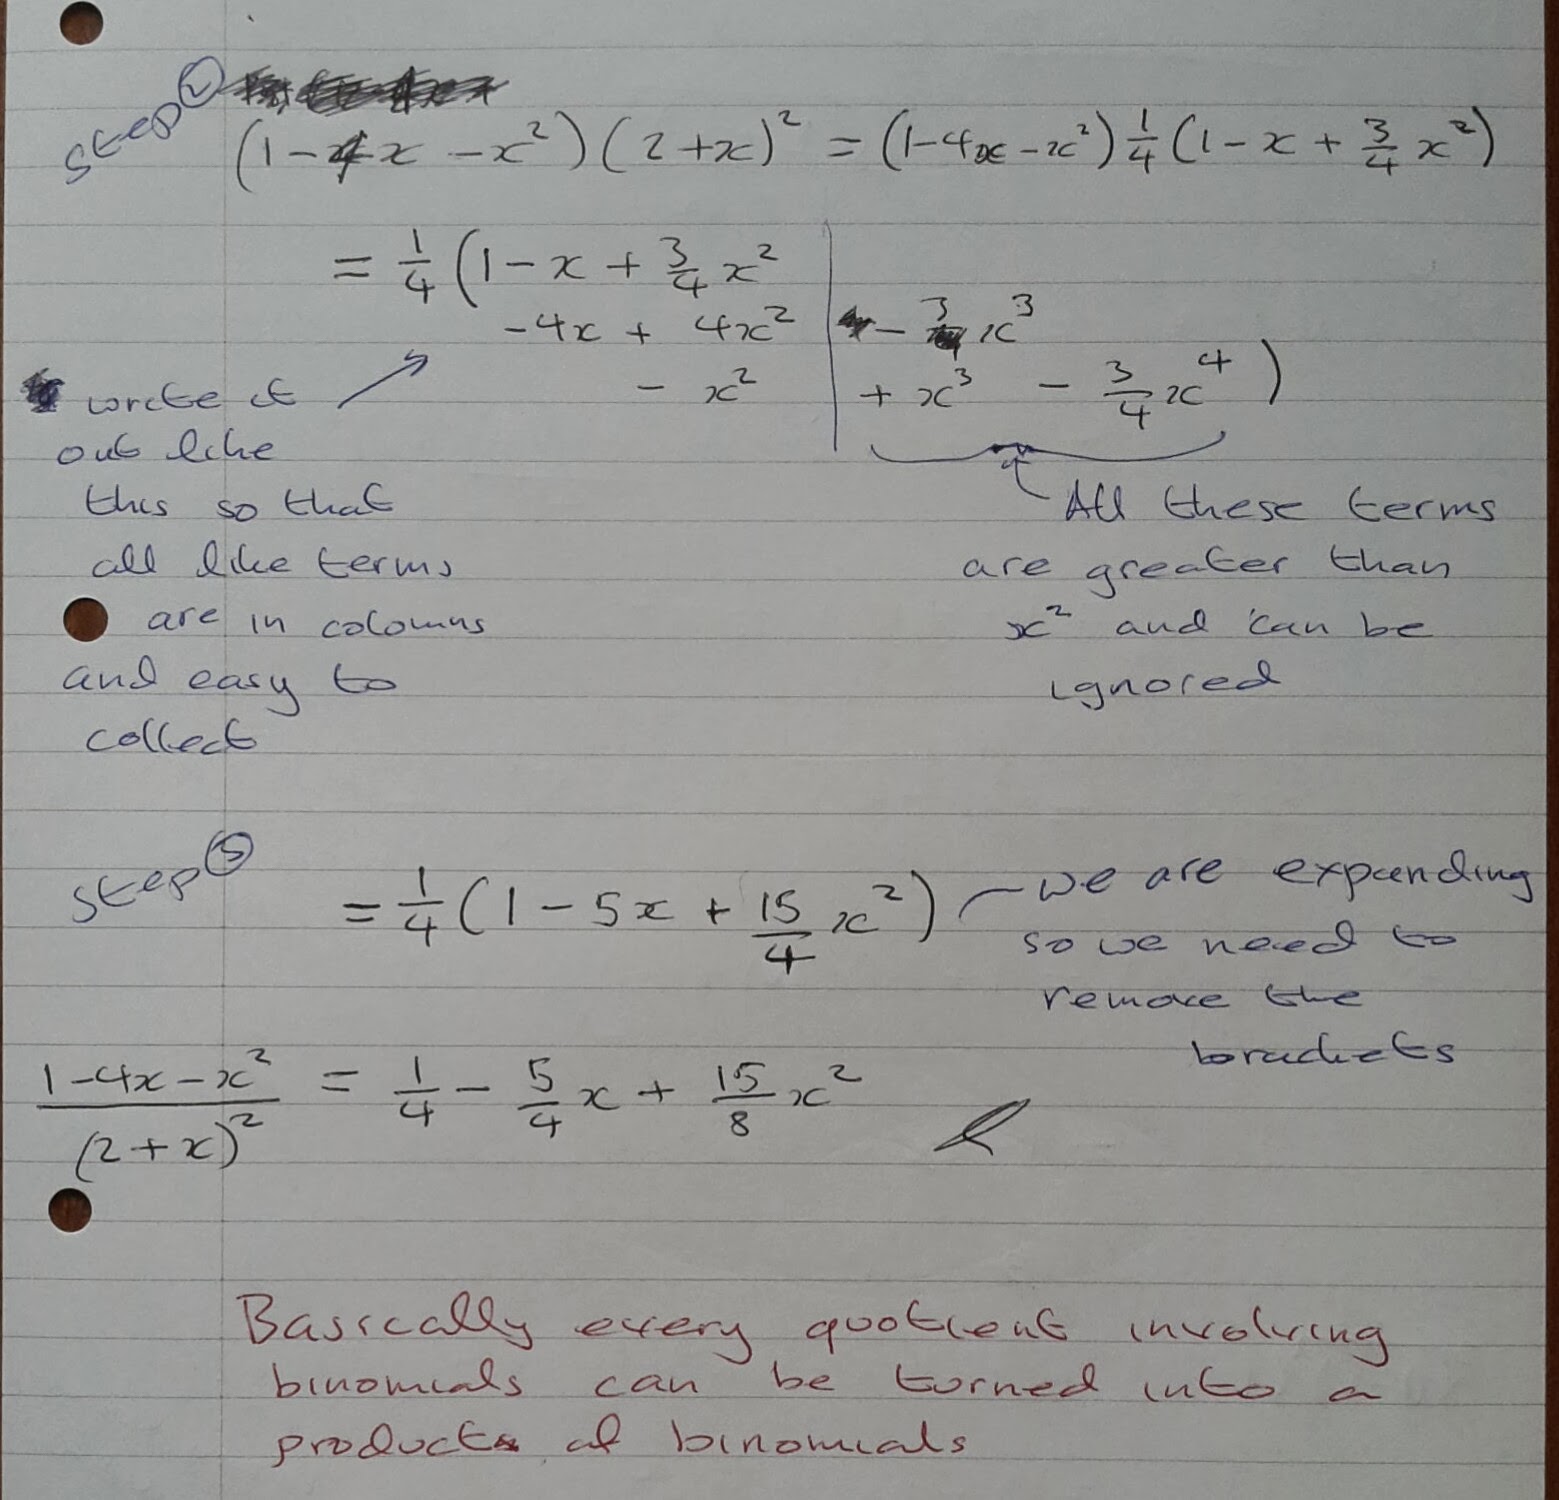 Step ②
(1-4x-x²)(2+x)² = (1-4x-x²)¼(1-x+¾x²)
= ¼(1-x+¾x²
-4x + 4x² - x³
- x² + x³ - ¾x⁴)
write it
out like
this so that
all like terms
are in colomns
and easy to
collect
All these terms
are greater than
x² and can be
ignored
Step ③
= ¼(1-5x+15/4x²)
we are expanding
so we need to
remove the
brackets
1-4x-x²/(2+x)² = ¼ - 5/4x + 15/8x²
Basically every quotient involving
binomials can be turned into a
product of binomials